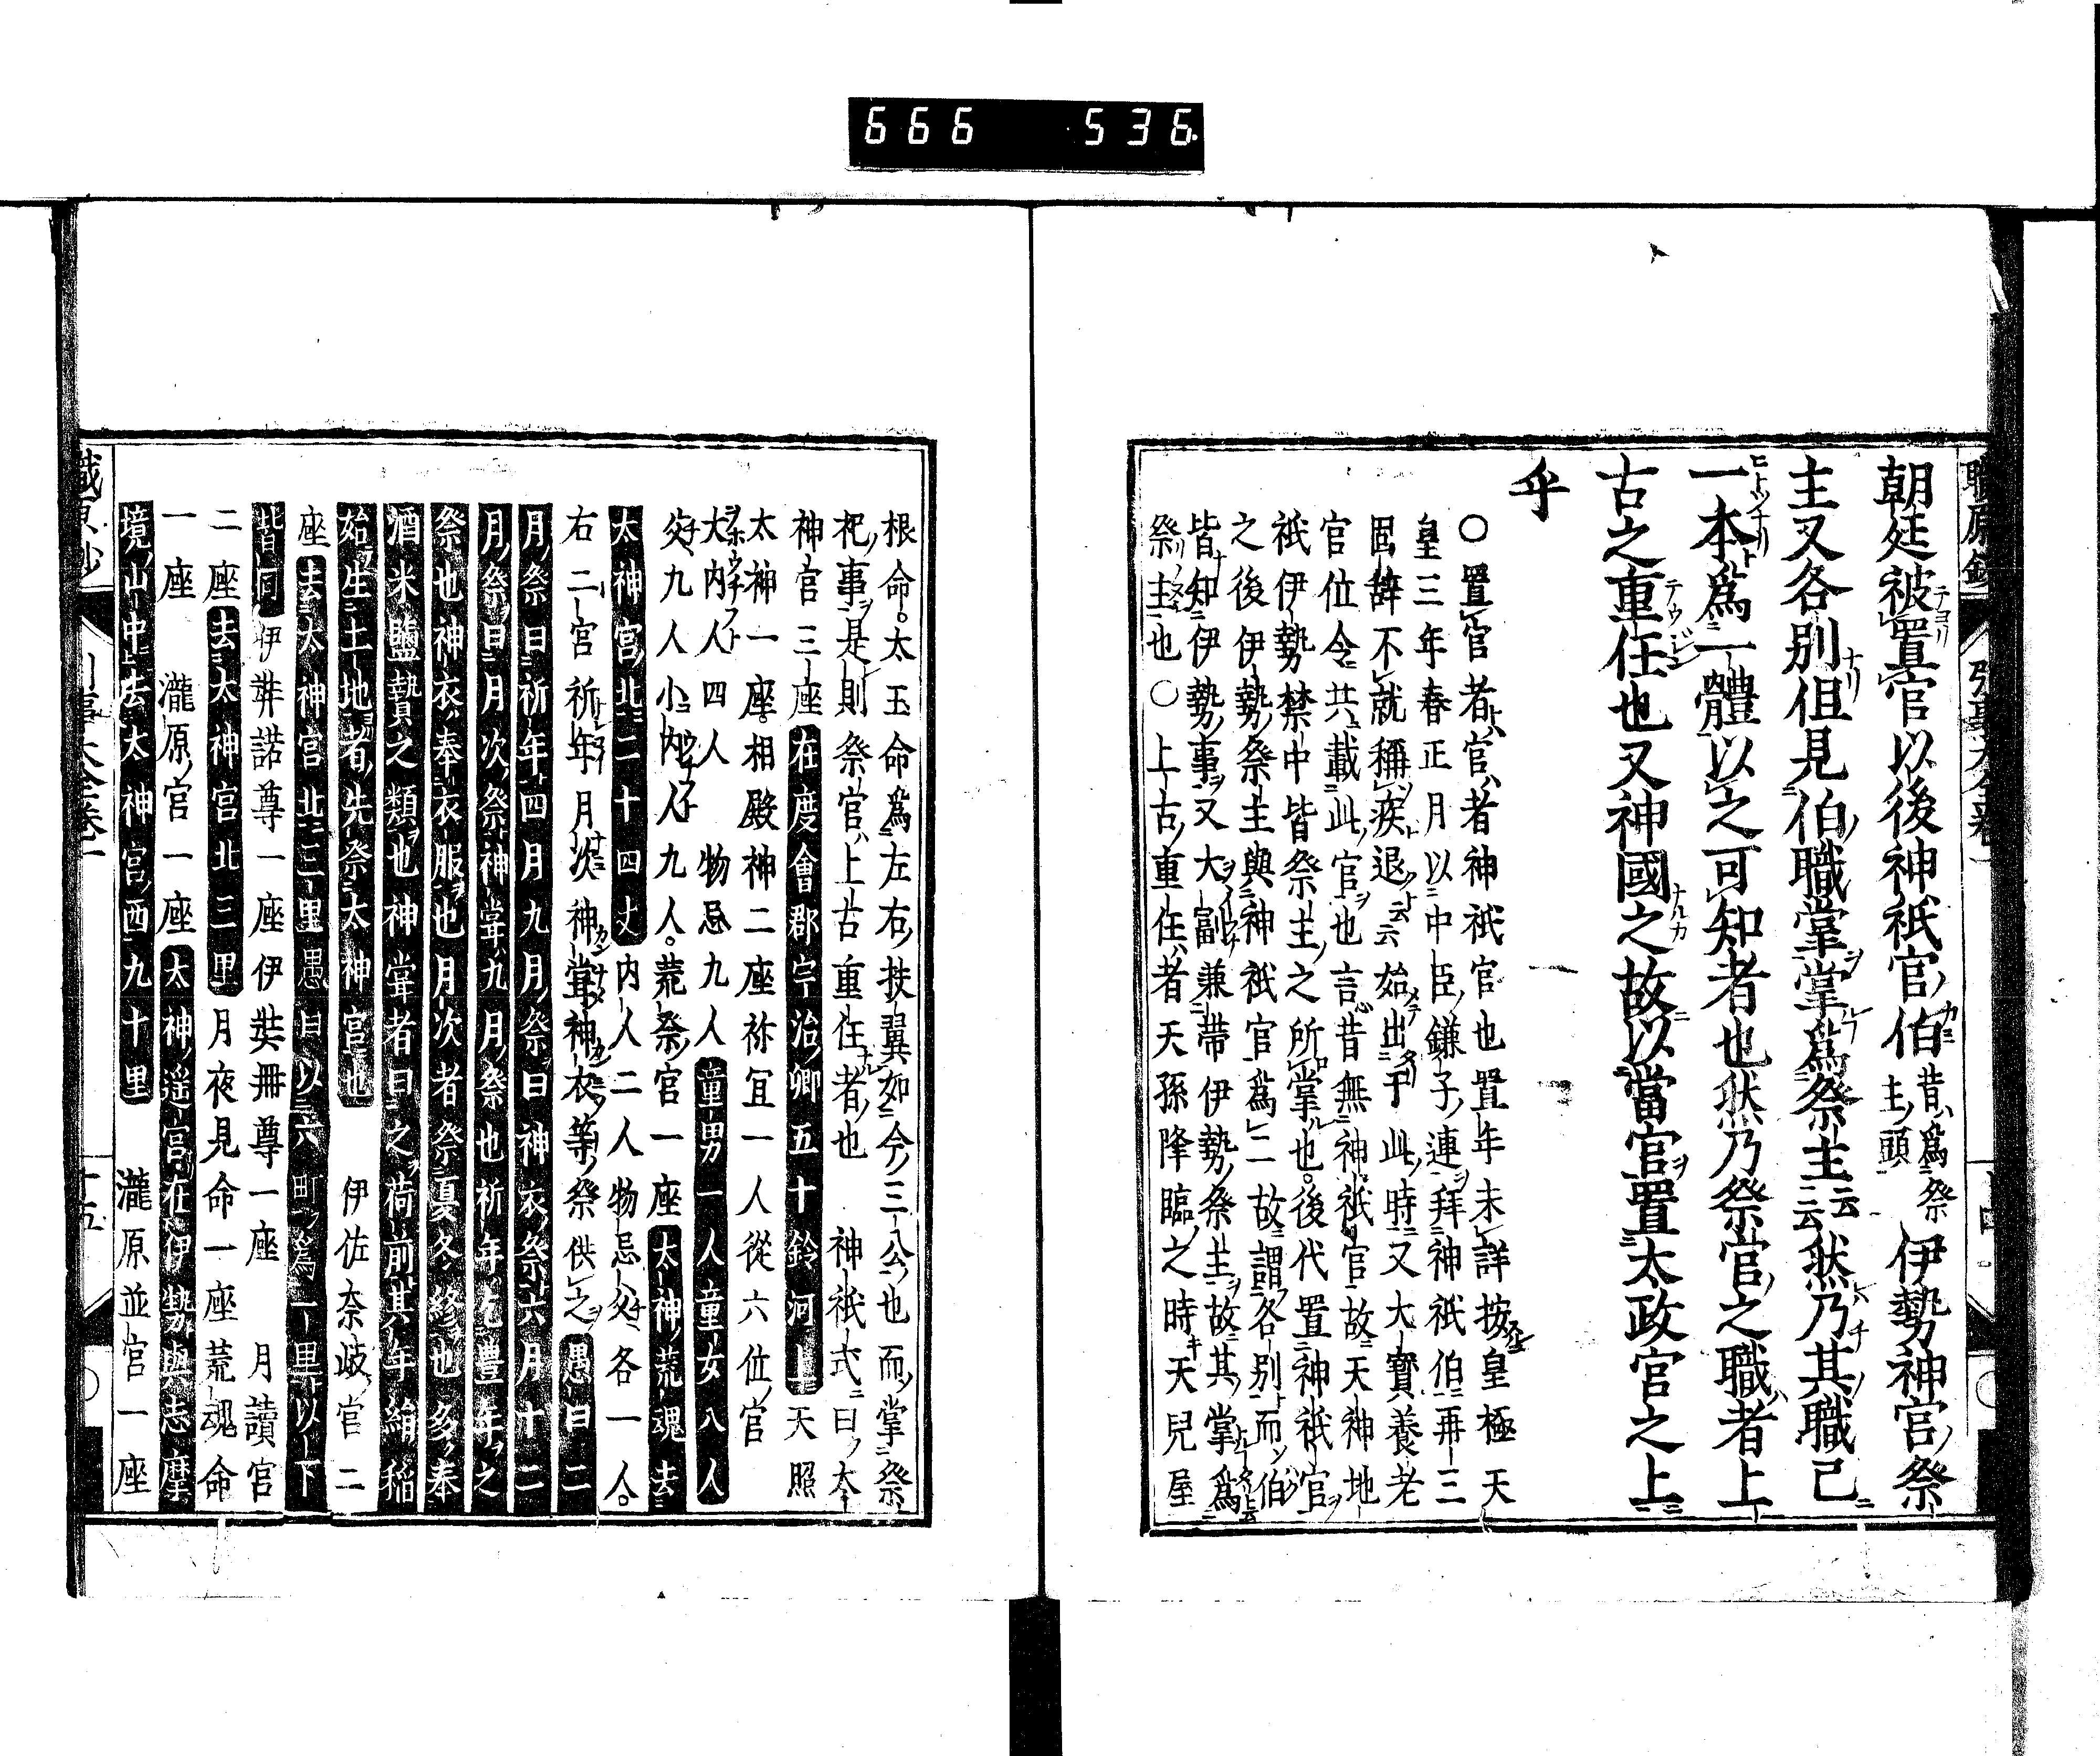 666 536
朝廷被置官以後神祇官伯昔爲祭主頭伊勢神官祭
主又各別但見伯職掌掌爲祭主云云然乃其職已
一本爲一體以之可知者也然乃祭官之職者上
古之重任也又神國之故以當官置太政官之上
乎
〇置官者官者神祇官也置年未詳按皇極天
皇三年春正月以中臣鎌子連拜神祇伯再三
固辭不就稱疾退云云始出于此時又大寶養老
官位令共載此官也言昔無神祇官故天神地
祇伊勢禁中皆祭主之所掌也後代置神祇官
之後伊勢祭主與神祇官爲二故謂各別而伯
皆知伊勢事又大副兼帶伊勢祭主故其掌爲
祭主也〇上古重任者天孫降臨之時天兒屋
根命太玉命爲左右扶翼如今三公也而掌祭
祀事是則祭官上古重任者也 神祇式曰太
神宮三座在度會郡宇治鄉五十鈴河上天照
太神一座相殿神二座祢宜一人從六位官
大内人四人 物忌九人童男一人童女八人
父九人小内人九人荒祭官一座太神荒魂去
太神宮北二十四丈内人二人物忌父各一人
右二宮祈年月次神甞神衣等祭供之愚曰二
月祭曰祈年四月九月祭曰神衣祭六月十二
月祭曰月次祭神甞九月祭也祈年乞豐年之
祭也神衣奉衣服也月次者祭夏冬終也多奉
酒米鹽贄之類也神甞者曰之荷前其年絹稲
始生土地者先祭太神宮也 伊佐奈岐官二
座去太神宮北三里愚曰以六町爲一里以下
皆同伊弉諾尊一座伊弉冊尊一座 月讀官
二座去太神宮北三里月夜見命一座荒魂命
一座 瀧原官一座太神遥宮在伊勢與志摩
境山中去太神宮西九十里 瀧原並官一座